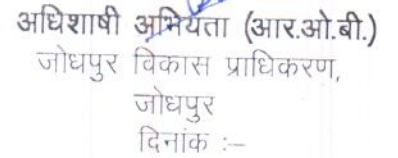 अधिशाषी अभियंता (आर.ओ.बी.)
जोधपुर विकास प्राधिकरण,
जोधपुर
दिनांक :–